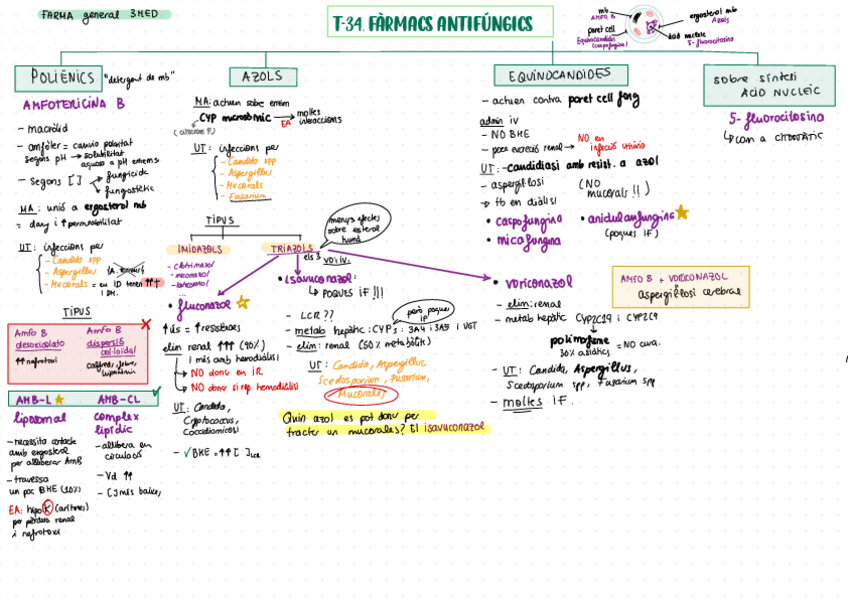 FARMA general 3MED
T-34. FÀRMACS ANTIFÚNGICS
mb
AMFO B
paret cell
Equinocandida
(caspofungina)
ergosterol mb
Azols
àcid nucleic
5-flurocitosina
POLIÈNICS "detergent de mb"
AMFOTERICINA B
- macròlid
- amfòter = canvia polaritat
segons pH → solubilitat
aquosa a pH extrems
- Segons [ ] fungicida
fungostàtic
MA: unió a ergosterol mb
= dany i ↑permeabilitat
UT: infeccions per
- Candida spp
- Aspergillus (A. terreus)
- Mucorals = en ID tenen ↑↑↑
i DM.
TIPUS
Amfo B
desoxicolato
↑↑ nefrotoxi
Amfo B
dispersió
col·loidal
AMB-L
liposomal
-necessita contacte
amb ergosterol
per alliberar AmB
-travessa
un poc BHE (10%)
EA: hipo K (arítmies)
per pèrdua renal
i nefrotoxi
AMB-CL
complex
lipídic
-allibera en
circulació
-Vd ↑↑
- [ ] més baixes
AZOLS
MA: actuen sobre enzim
CYP microsomic → moltes
EA interaccions
UT: infeccions per
- Candida spp
- Aspergillus
- Mucorals
- Fusarium
TIPUS
IMIDAZOLS
- clotrimazol
- miconazol
- ketoconazol
...
TRIAZOLS
menys efectes
sobre esterol
humà
els 3 VO i IV.
• fluconazol
↑ús = ↑resistències
elim renal ↑↑↑ (90%)
i més amb hemodiàlisi
→ NO donar en IR
→ NO donar si rep hemodiàlisi
UT: Candida,
Cryptococcus,
Coccidiomicosi
- ✓BHE = ↑↑ [ ]LCR
• isavuconazol:
↳ POQUES IF!!!
- LCR??
però poques
IF
- metab hepàtic: CYPs: 3A4 i 3A5 i UGT
- elim: renal (50% metabòlit)
UT: Candida, Aspergillus,
Scedosporium, Fusarium,
Mucorales
Quin azol es pot donar per
tractar un mucorales? El isavuconazol
EQUINOCANDIDES
- actuen contra paret cell fong
admin iv
- NO BHE
- poca excreció renal → NO en
infecció urinària
UT: -Candidiasi amb resist. a azol
- aspergilosi (NO
mucorals!!)
→ tb en diàlisi
• caspofungina
• micafungina
• anidulanfungina
(poques IF)
• voriconazol
- elim: renal
- metab hepàtic CYP2C19 i CYP2C9
polimorfisme
30% asiàtics = NO cura.
- UT: Candida, Aspergillus,
Scedosporium spp, Fusarium spp
- moltes IF.
AMFO B + VORICONAZOL
aspergil·losi cerebral
sobre síntesi
ÀCID NUCLEIC
5-flurocitosina
↳ com a citostàtic